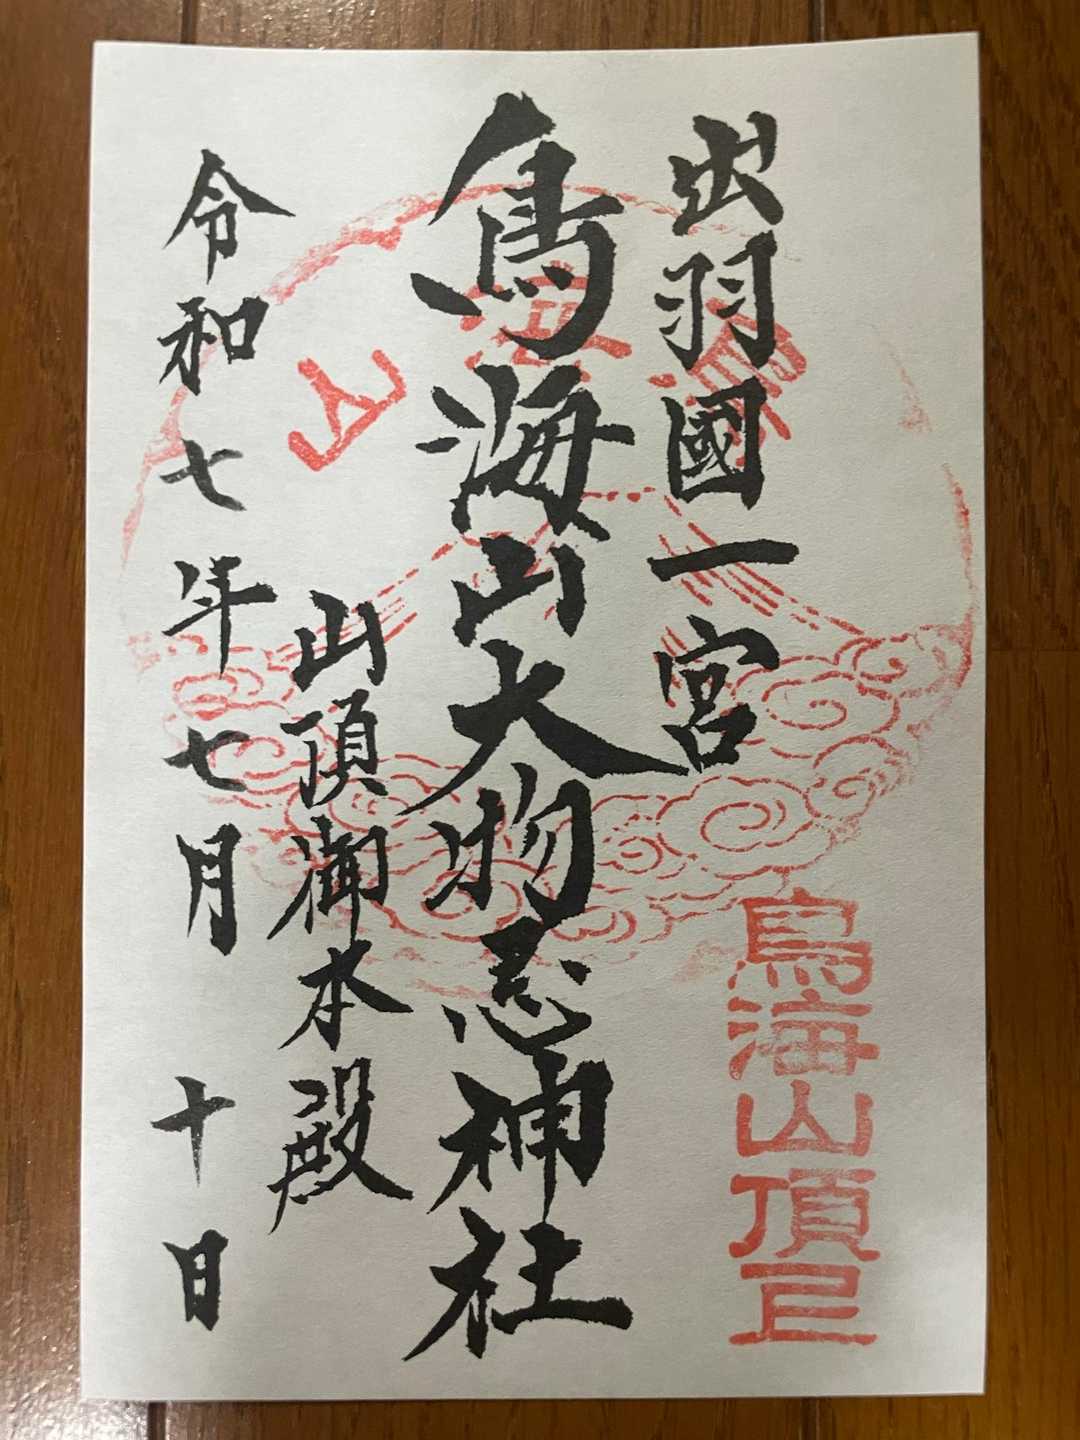 出羽國一宮
鳥海山大物忌神社
山頂御本殿
令和七年七月十日
鳥海山
鳥海山頂印